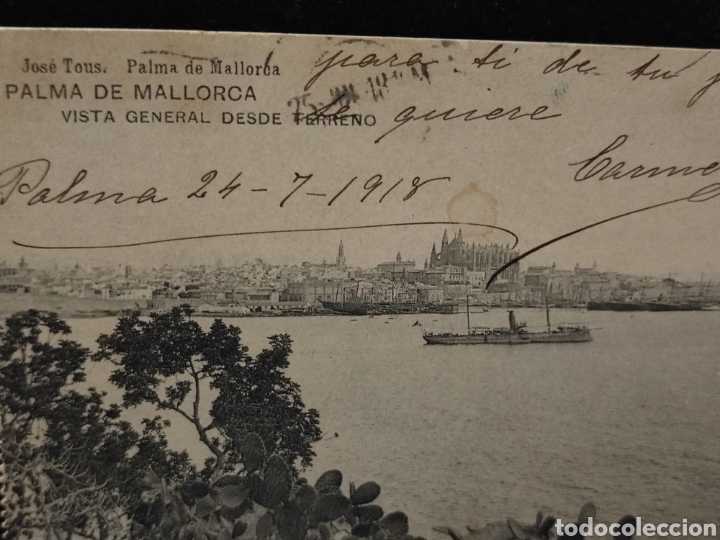 José Tous. Palma de Mallorca
PALMA DE MALLORCA
VISTA GENERAL DESDE TERRENO
para ti de tu
te quiere
Palma 24-7-1918
Carme
todocoleccion
todocoleccion.net